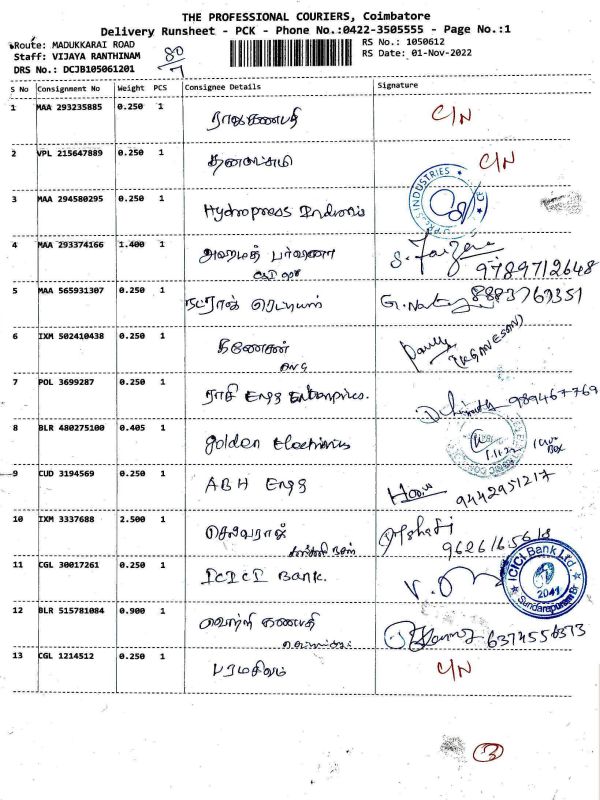 THE PROFESSIONAL COURIERS, Coimbatore
Delivery Runsheet - PCK - Phone No.:0422-3505555 - Page No.:1
Route: MADUKKARAI ROAD
RS No.: 1050612
Staff: VIJAYA RANTHINAM
RS Date: 01-Nov-2022
DRS No.: DCJB105061201
80/7
S No Consignment No Weight PCS Consignee Details Signature
1 MAA 293235885 0.250 1 ராஜகணபதி C/N
2 VPL 215647889 0.250 1 தனலட்சுமி C/N
3 MAA 294580295 0.250 1 Hydropress Industries
INDUSTRIES
4 MAA 293374166 1.400 1 அஹமத் S. Faizana
9789712648
5 MAA 565931307 0.250 1 நடராஜ் ரெட்டியார் 8883769351
6 IXM 502410438 0.250 1 கணேசன் (KGANESAN)
7 POL 3699287 0.250 1 ராசி Engg Enterprises. 989467769
8 BLR 480275100 0.405 1 Golden Electronics
BOX
9 CUD 3194569 0.250 1 ABH Engg 9442951217
10 IXM 3337688 2.500 1 செல்வராஜ்
9626165618
11 CGL 30017261 0.250 1 ICICI Bank.
ICICI Bank Ltd.
2041
Sundarapuram Br
12 BLR 515781084 0.900 1 வெற்றி கணபதி 6374556373
13 CGL 1214512 0.250 1 பரமசிவம் C/N
3